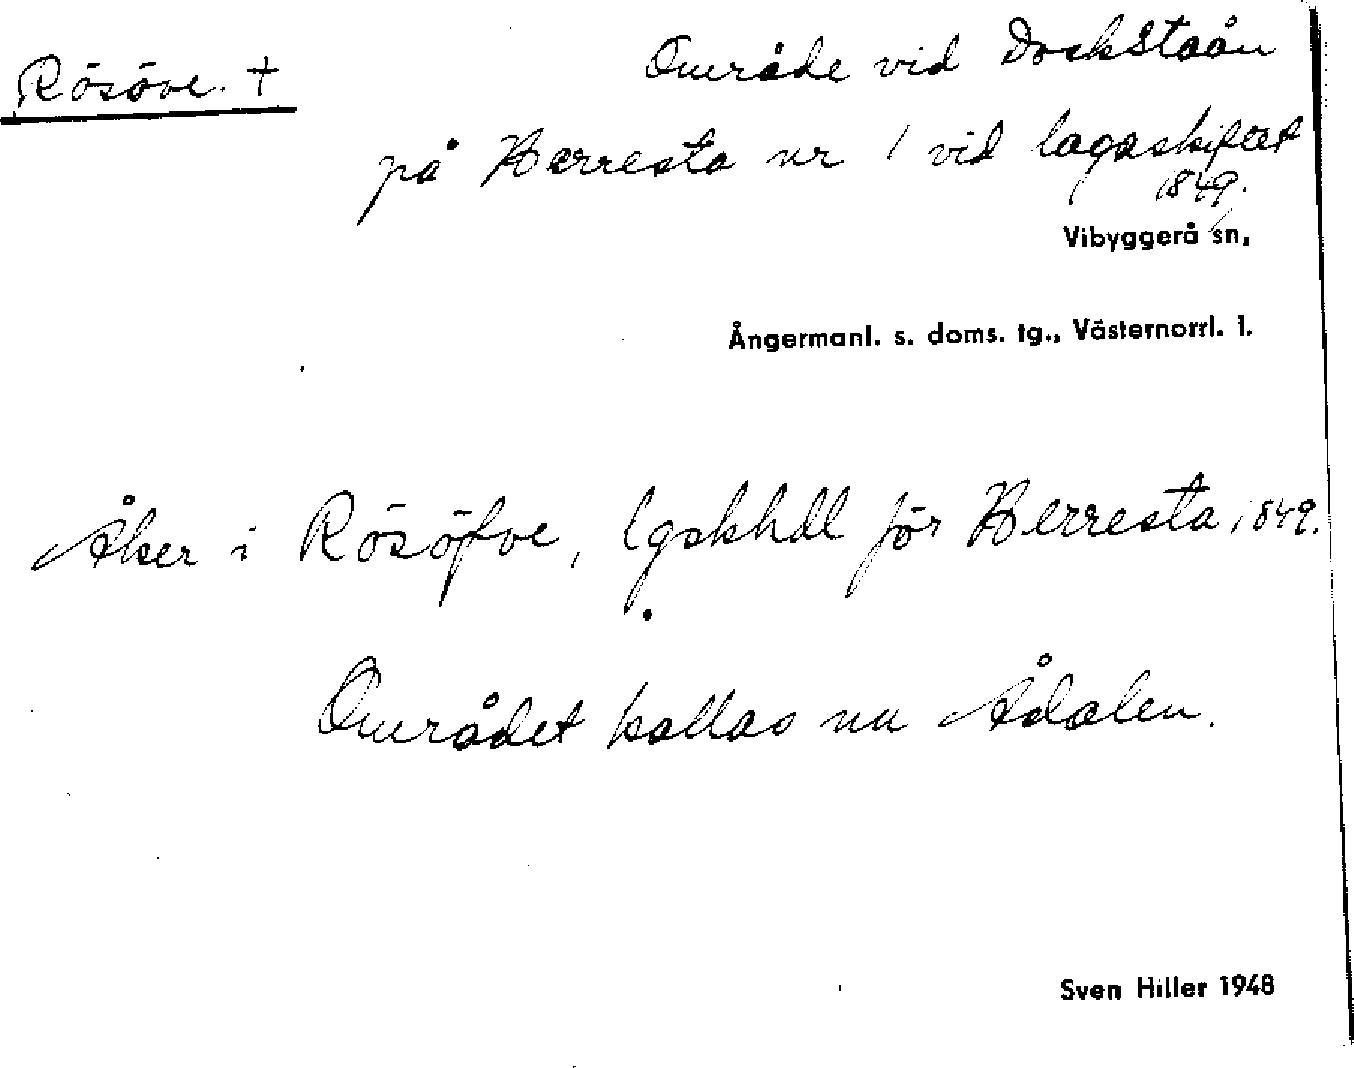 Rösöve. † Område vid Dockstaån
på Herresta nr 1 vid lagaskiftet
1849.
Vibyggerå sn,
Ångermanl. s. doms. tg., Västernorrl. l.
Åker i Rösöfve, lgskhdl för Herresta, 1849.
Området kallas nu Ådalen.
Sven Hiller 1948